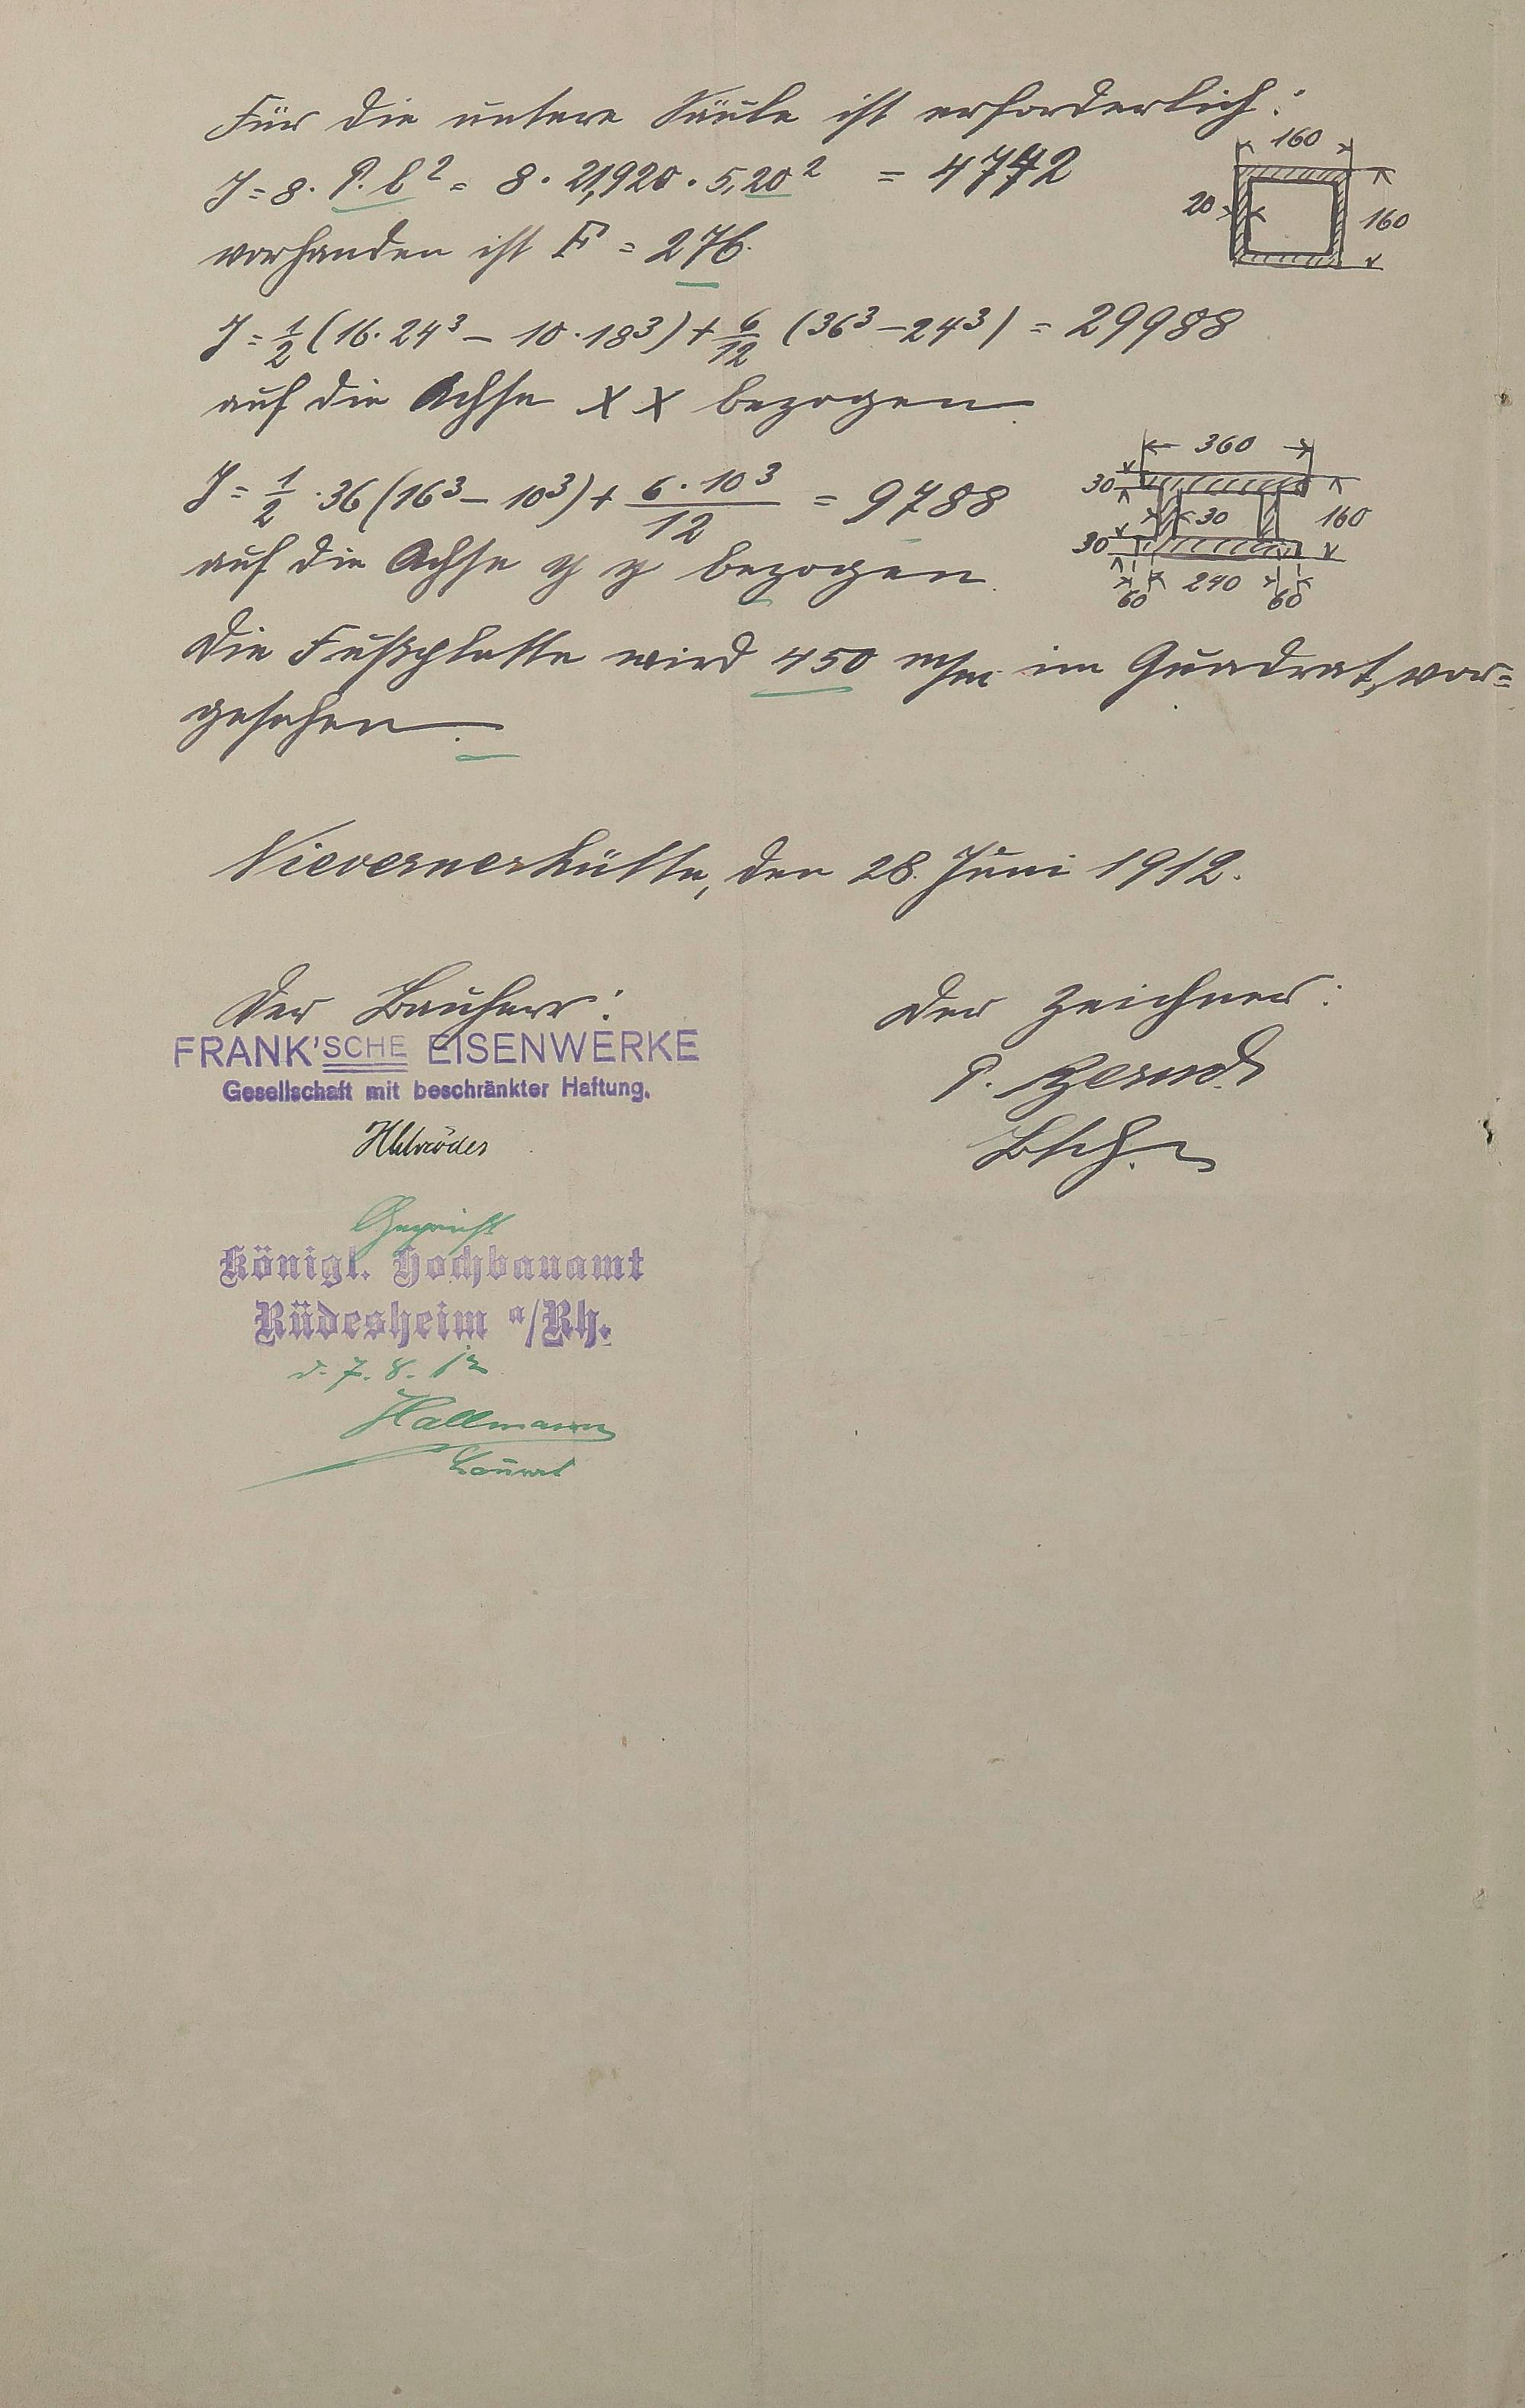 Für die untere Säule ist erforderlich:
J = 8 · P. l² = 8 · 21,920 · 5,20² = 4742
160
20
160
vorhanden ist F = 276.
J = 1/2 (16 · 24³ – 10 · 18³) + 6/12 (36³ – 24³) = 29988
auf die Achse X X bezogen.
J = 1/2 · 36 (16³ – 10³) + 6 · 10³/12 = 9788
360
30
30
160
30
60
240
60
auf die Achse y y bezogen.
Die Fußplatte wird 450 m/m im Quadrat, vor=
gesehen.
Nievernerhütte, den 28. Juni 1912.
Der Bauherr:
FRANK'SCHE EISENWERKE
Gesellschaft mit beschränkter Haftung.
Der Zeichner:
Geprüft
Königl. Hochbauamt
Rüdesheim a/Rh.
d. 7. 8. 12
Hallmann
Baurat